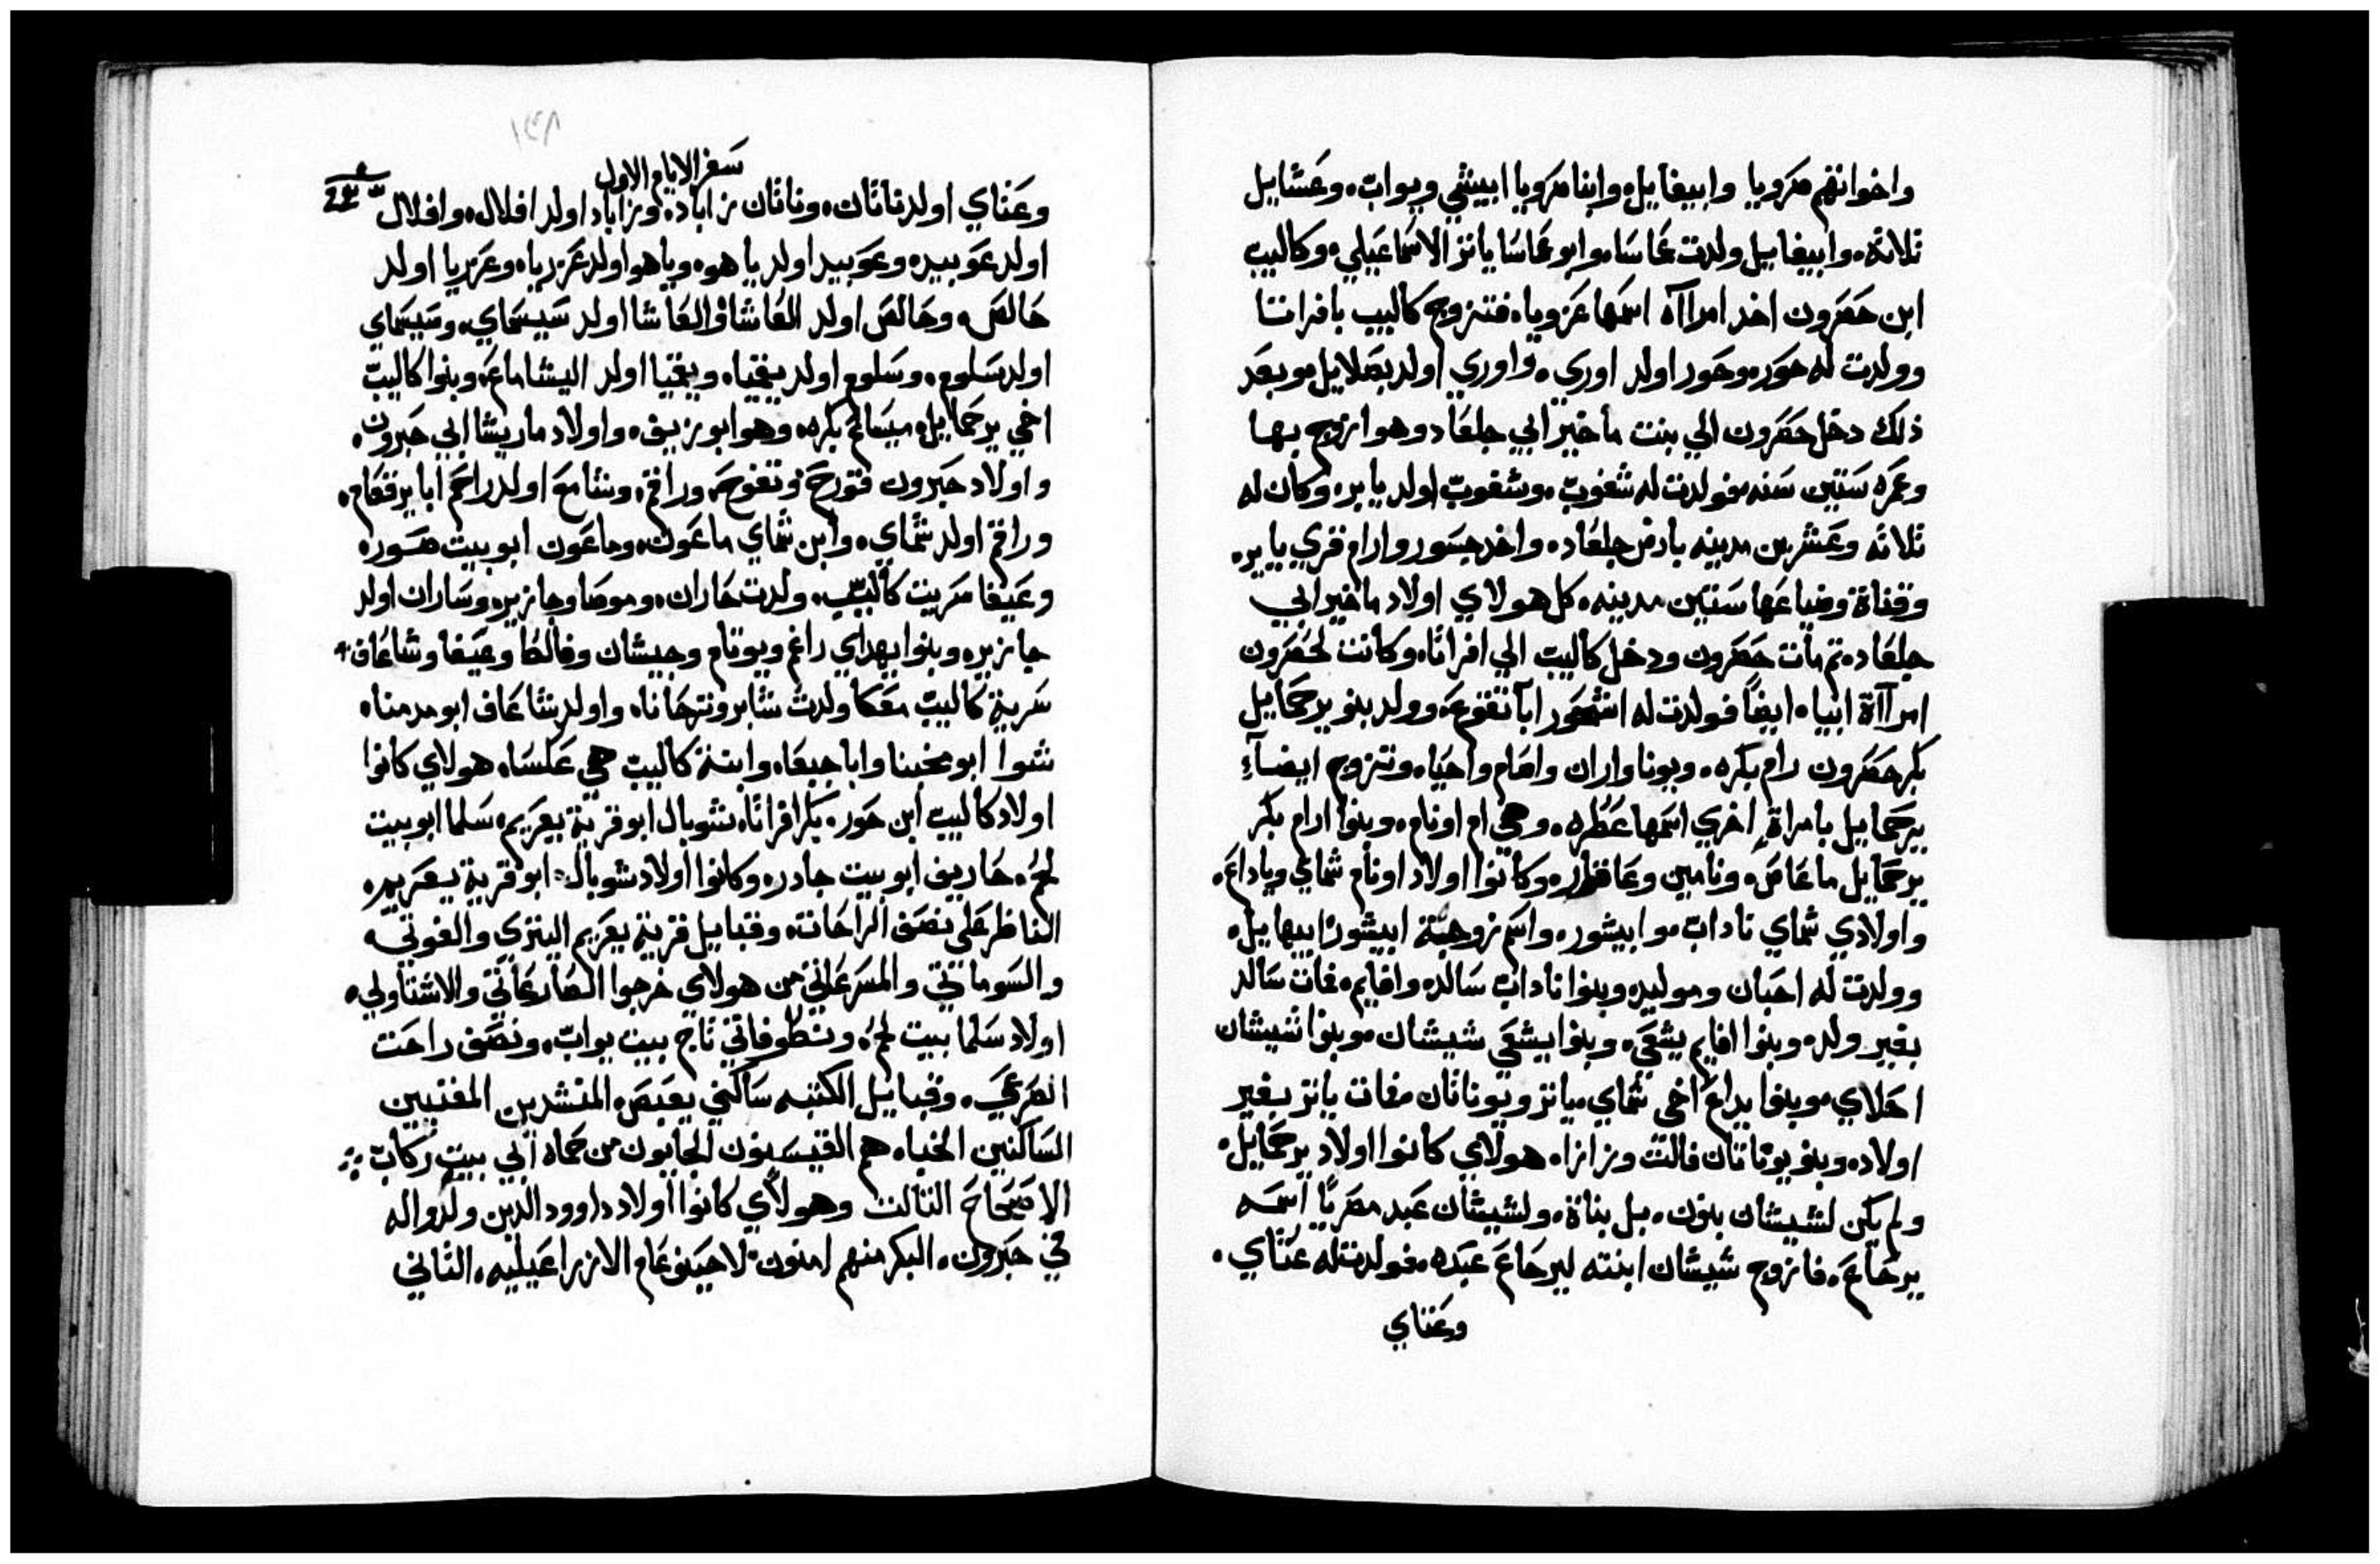 واخوانهم صرويا وابيغايل وابنا صرويا ابيشي ويواب، وعشايل
ثلاثة، وابيغاييل ولدت عماسا، وابو عماسا ياتر الاسماعيلي، وكاليب
ابن حصرون اخد امراآه اسمها عزويا، فتزوج كاليب بافراتا
وولدت له حور، وحور اولد اوري، واوري اولد بصلاييل، وبعد
ذلك دخل حصرون الي بنت ماخير ابي جلعاد وهو ازوج بها
وعمره ستين سنه، فولدت له شغوب، وشغوب اولد ياير، وكان له
ثلاثه وعشرين مدينه بارض جلعاد، واخد جسور وارام قري ياير،
وقناة وضياعها ستين مدينه، كل هولاي اولاد ماخير ابي
جلعاد، ثم مات حصرون ودخل كاليب الي افراتاه، وكانت لحصرون
امراآة ابياه ايضاً فولدت له اشحور ابا تقوع، وولد بنو يرحماييل
بكر حصرون رام بكره، وبونا واران واصام واحياه، وتزوج ايضآء
يرحماييل بامراةٍ اخري اسمها عطره، وهي ام اونام، وبنوا ارام بكر
يرحماييل ماعاص، ونامين وعاقار، وكانوا اولاد اونام شماي وياداع،
واولادي شماي ناداب، وابيشور، واسم زوجة ابيشور ابيهاييل،
وولدت له احبان وموليد، وبنوا ناداب سالد، وافايم، فمات سالد
بغير ولد، وبنوا افايم يشعي، وبنوا يشعي شيشان، وبنوا شيشان
احلاي، وبنوا يداع اخي شماي، ياتر ويوناثان، فمات ياتر بغير
اولاد، وبنو يوناتان فالت وزازا، هولاي كانوا اولاد يرحماييل،
ولم يكن لشيشان بنون، بل بناة، ولشيشان عبد مصرياً اسمه
يرحاع، فازوج شيشان ابنته ليرحاع عبده، فولدت له عتاي،
وعتاي
١٤٨
سفر الايام الاول
وعتاي اولد ناثان، وناثان زاباد، وزاباد اولد افلال، وافلال
اولد عوبيد، وعوبيد اولد ياهو، وياهو اولد عزريا، وعزريا اولد
حالص، وحالص اولد العاشا، والعاشا اولد سيسماي، وسيسماي
اولد سلوم، وسلوم اولد يقميا، ويقميا اولد اليشاماع، وبنوا كاليب
اخي يرحماييل، ميساع بكره، وهو ابو زيف، واولاد ماريشا ابي حبرون،
واولاد حبرون قورح وتفوح، وراقم، وشامع، اولد راحم ابا يرقعام،
وراقم اولد شماي، وابن شماي ماعون، وماعون ابو بيت صور،
وعيفا سريت كاليب، ولدت حاران، وموصا وجازيز، وساران اولد
جازيز، وبنوا يهداي راغم ويوتام وجيشان وفالط وعيفا وشاعاف،
سرية كاليب معكا ولدت شابر وترحاناه، واولد شاعاف ابو مدمناه
شوا ابو مخبنا وابا جبعا، وابنة كاليب هي عكسا، هولاي كانوا
اولاد كاليب ابن حور، بكر افراتا، شوبال ابو قرية يعريم، سلما ابو بيت
لحم، حاريف ابو بيت جادر، وكانوا اولاد شوبال، ابو قرية يعريم،
الناظر علي نصف الراحات، وقباييل قرية يعريم اليتري والفوتي
والسوماتي والمسرعاني، من هولاي خرجوا الصارعاتي والاشتاولي،
اولاد سلما بيت لحم، ونطوفاتي تاج بيت يواب، ونصف راحت
الصرعي، وقباييل الكتبه ساكني يعبص، المنشدين المغنيين
الساكنين الخباه، هم القينسيون الجايون من حماه ابي بيت ركاب
الاصحاح التالت وهولاي كانوا اولاد داوود الدين ولدوا له
في حبرون، البكر منهم امنون، لاحينوعام الازراعيليه، التاني